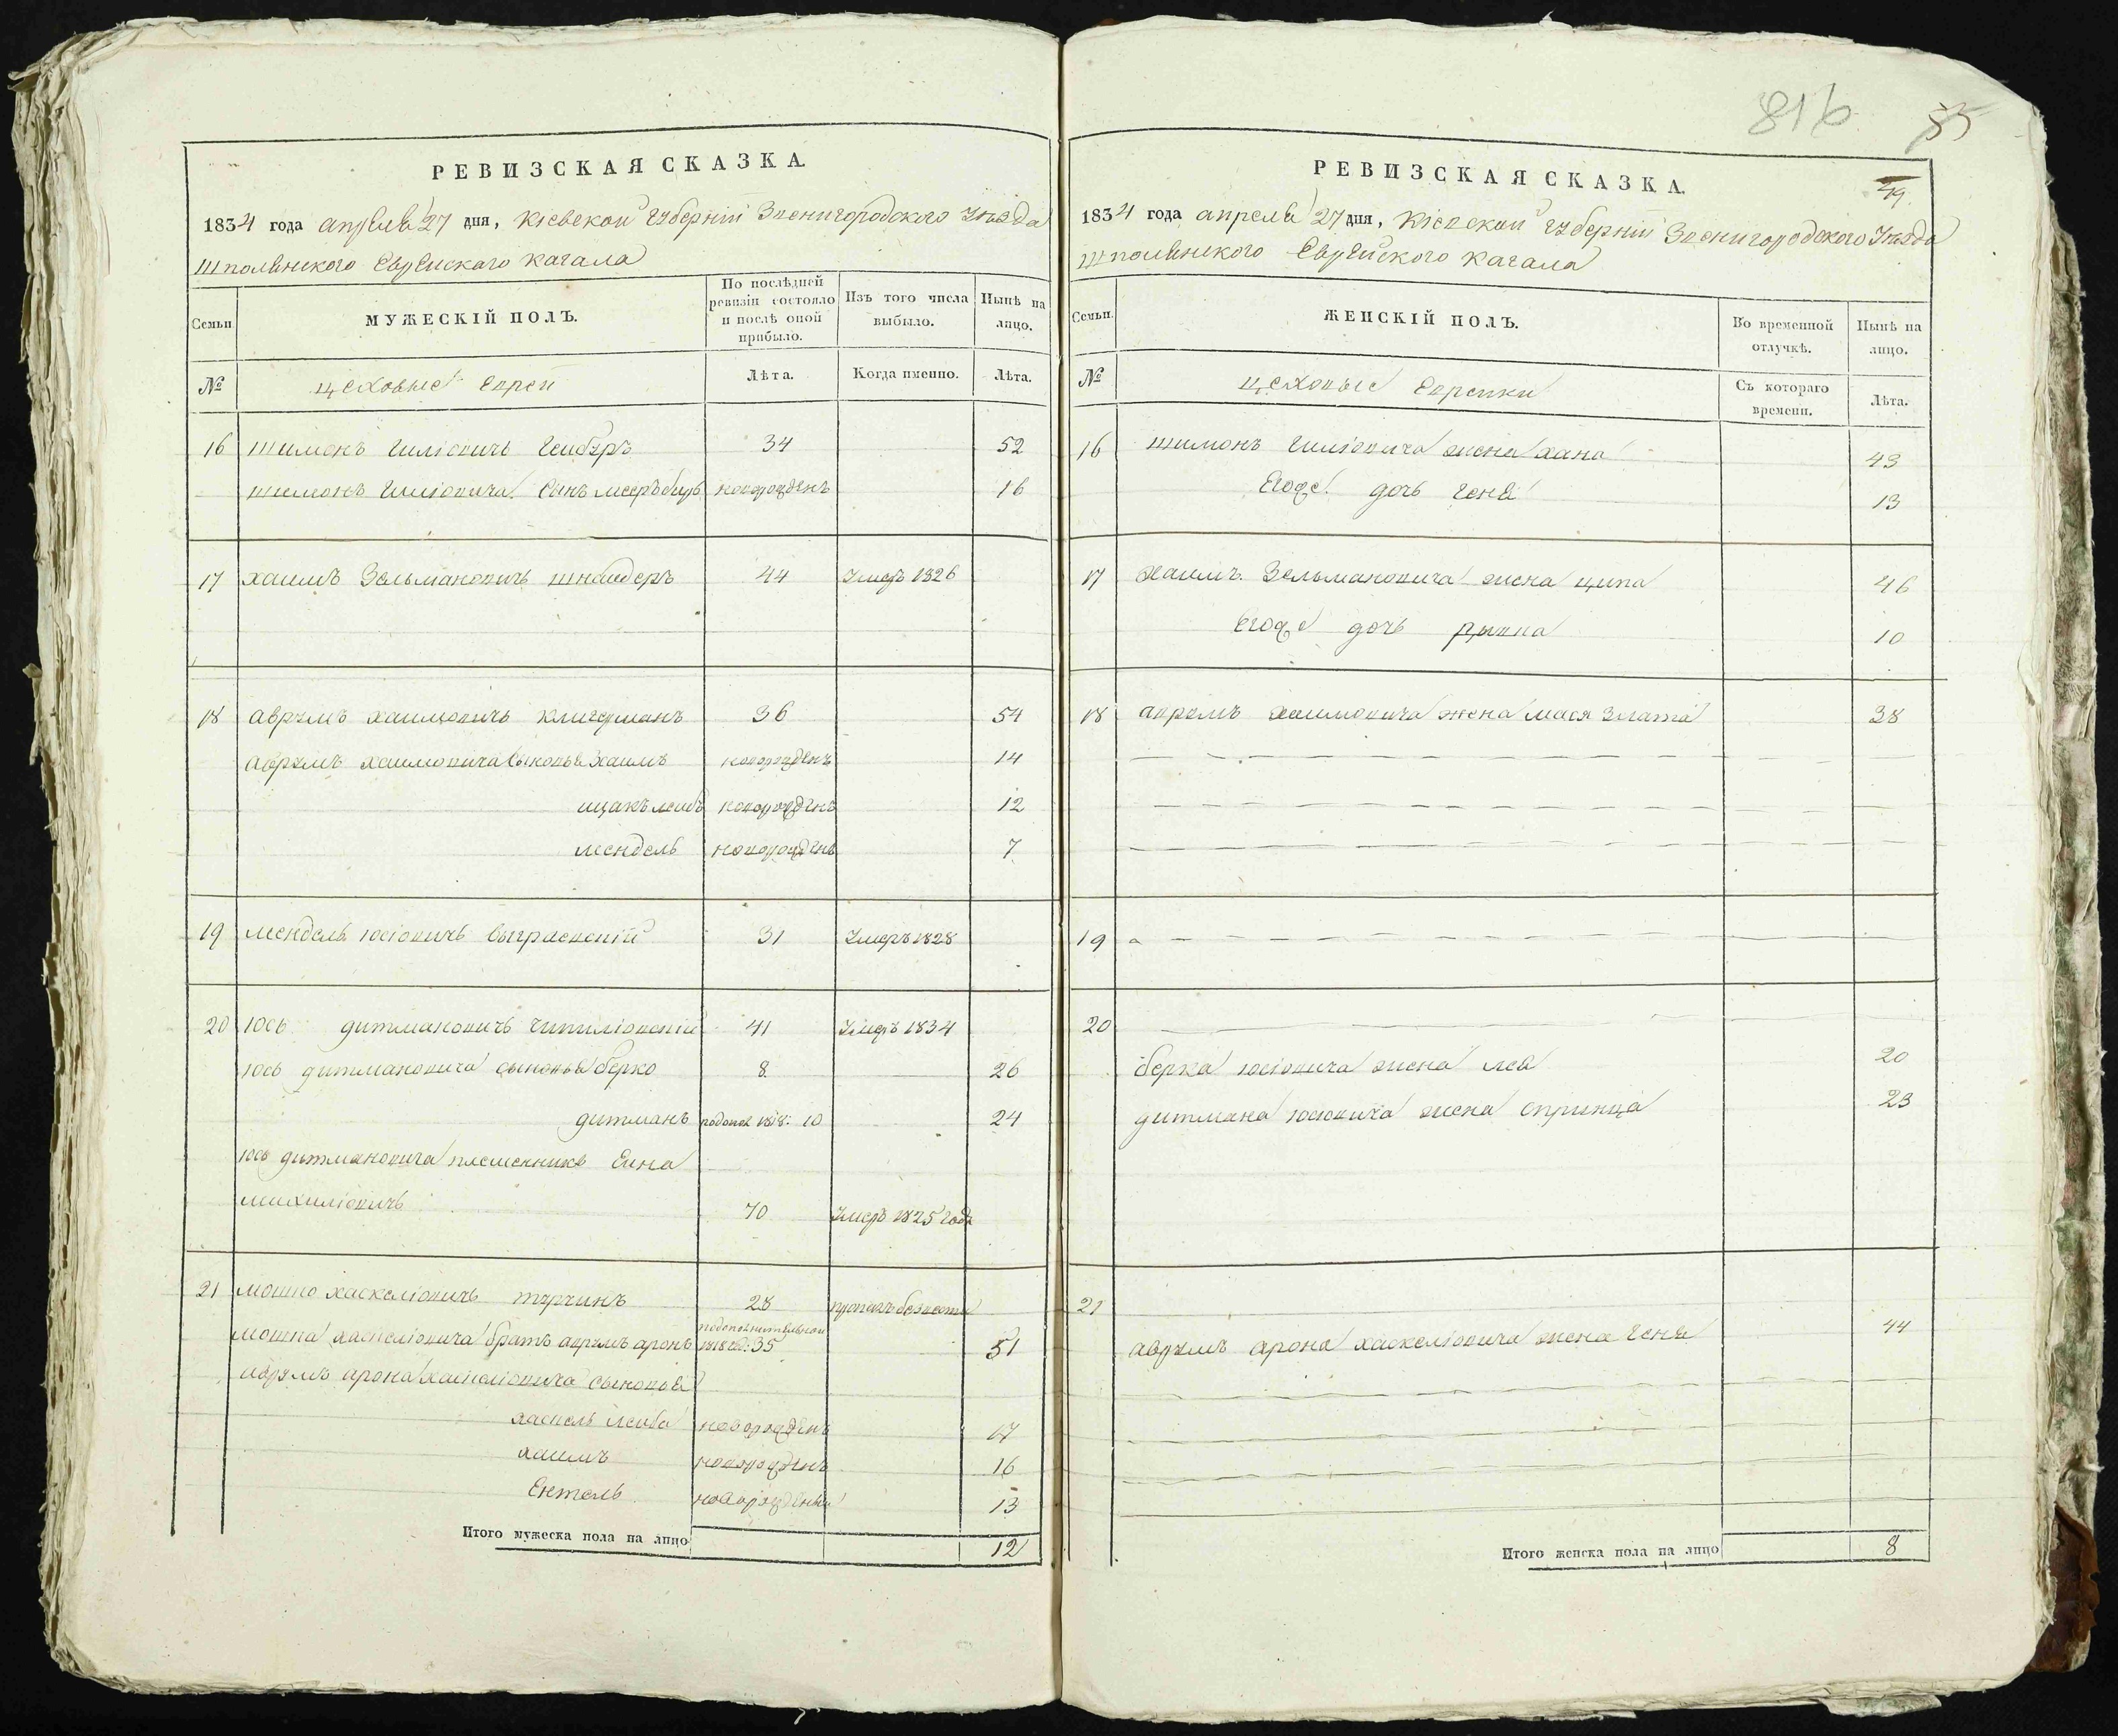 816 85
РЕВИЗСКАЯ СКАЗКА.
1834 года апреля 27 дня, Кіевской Губерніи Звенигородского Уезда
Шполянского Еврейскаго Кагала
Семьи МУЖЕСКІЙ ПОЛЪ. По послѣдней ревизіи состояло и послѣ оной прибыло. Изъ того числа выбыло. Нынѣ на лицо.
№ цеховые Евреи Лѣта. Когда именно. Лѣта.
16 шимонъ Гиліовичъ 34 52
шимонъ Гиліовича Сынъ мееръ новорожденъ 16
17 хаимъ Зельмановичъ шнайдеръ 44 Умеръ 1826
18 аврумъ хаимовичъ клигерманъ 36 54
аврумъ хаимовича сыновья хаимъ новорожденъ 14
ицакъ лейбъ новорожденъ 12
мендель новорожденъ 7
19 мендель юсіовичъ 31 Умеръ 1828
20 юсь дитмановичъ 41 Умеръ 1834
юсь дитмановича сыновья берко 8 26
дитманъ 1818: 10 24
юсь дитмановича племенникъ
михиліовичъ 70 Умеръ 1825 года
21 мошко хаскеліовичъ турчинъ 28 пропалъ безвести
мошка хаскеліовича братъ аврумъ аронъ подополнительной 1818 35 51
аврумъ арона хаскеліовича сыновья
хаскель лейба новорожденъ 17
хаимъ новорожденъ 16
Ентель новорожденый 13
Итого мужеска пола на лицо 12
РЕВИЗСКАЯ СКАЗКА. 49.
1834 года апреля 27 дня, Кіевской Губерніи Звенигородского Уезда
Шполянского Еврейского Кагала
Семьи. ЖЕНСКІЙ ПОЛЪ. Во временной отлучкѣ. Нынѣ на лицо.
№ цеховые Еврейки Съ котораго времени. Лѣта.
16 шимонъ Гиліовича жена хана 43
Егоже дочь геня 13
17 хаимъ Зельмановича жена ципа 46
Егоже дочь 10
18 аврумъ хаимовича жена мася злата 38
19
20
берка юсіовича жена лея 20
дитмана юсіовича жена спринца 23
21
аврумъ арона хаскеліовича жена геня 44
Итого женска пола на лицо 8